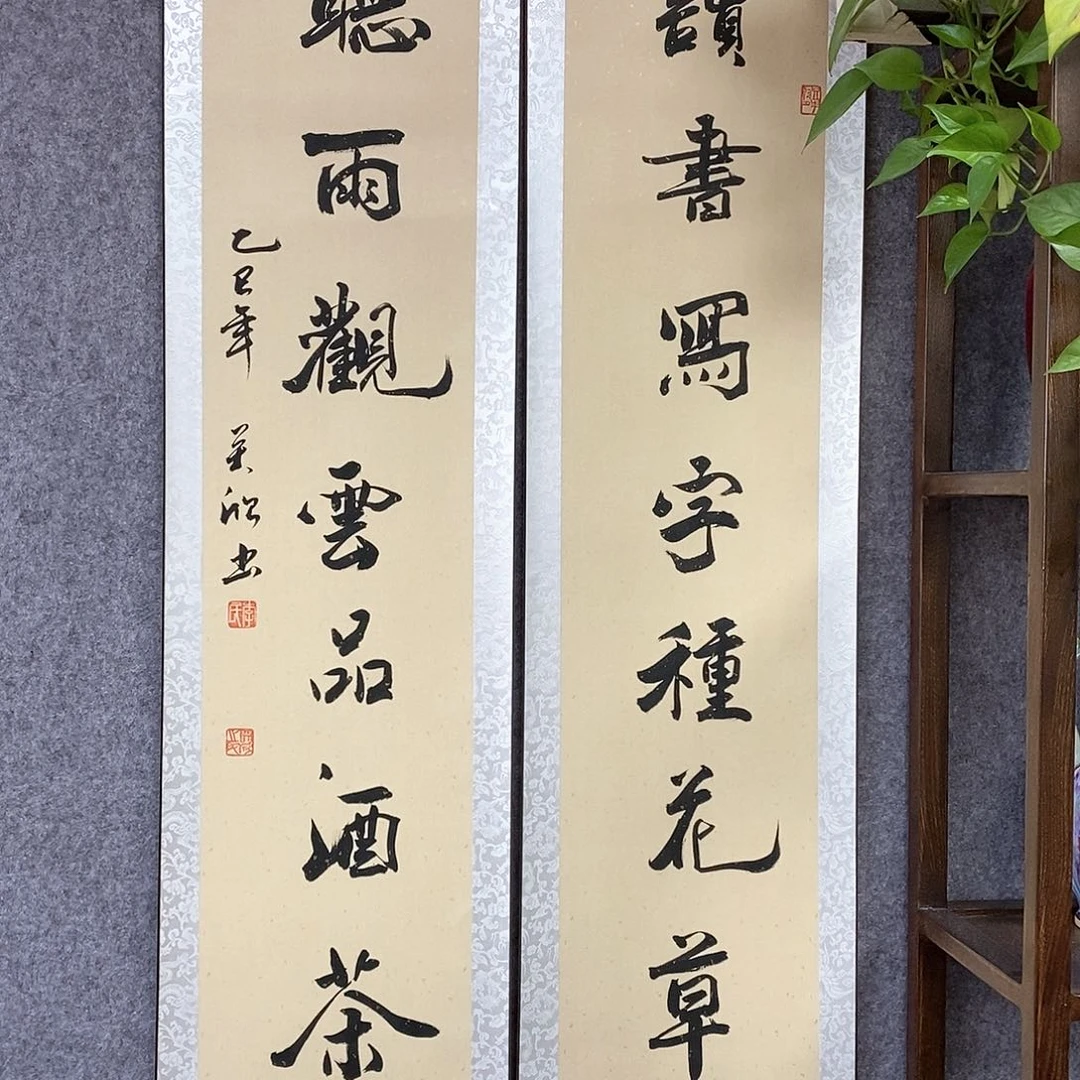 讀書寫字種花草
聽雨觀雲品酒茶
乙巳年 吴欣书